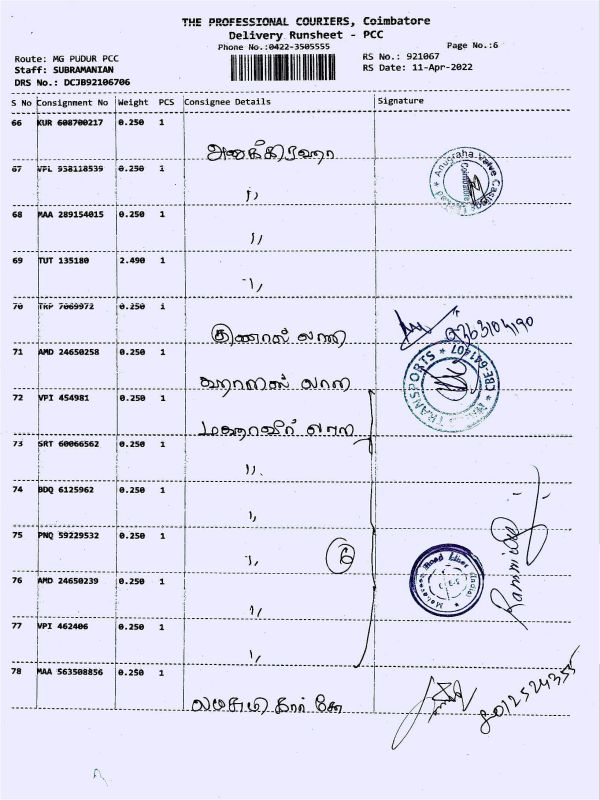 THE PROFESSIONAL COURIERS, Coimbatore
Delivery Runsheet - PCC
Phone No.:0422-3505555
Page No.:6
Route: MG PUDUR PCC
RS No.: 921067
Staff: SUBRAMANIAN
RS Date: 11-Apr-2022
DRS No.: DCJB92106706
S No Consignment No Weight PCS Consignee Details Signature
66 KUR 608700217 0.250 1
அனுக்கிரஹா
67 VPL 938118539 0.250 1
,,
68 MAA 289154015 0.250 1
,,
69 TUT 135180 2.490 1
,,
70 TRP 7069972 0.250 1
9363104190
71 AMD 24650258 0.250 1
72 VPI 454981 0.250 1
மஹாவீர்
73 SRT 60066562 0.250 1
,,
74 BDQ 6125962 0.250 1
,,
75 PNQ 59229532 0.250 1
,, 6
76 AMD 24650239 0.250 1
,,
77 VPI 462406 0.250 1
,,
78 MAA 563508856 0.250 1
லட்சுமி கார்
8012524355
Anugraha Valve Castings Limited * Coimbatore
TRANSPORTS * CBE-641407 *